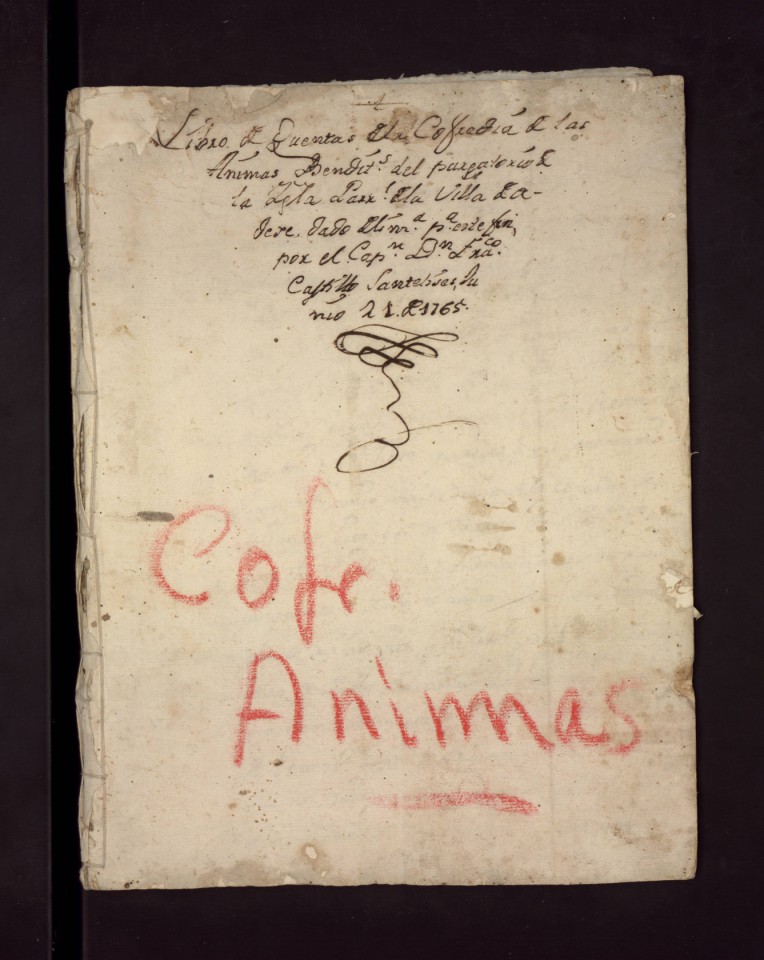 Libro de Quentas de la Cofradiá de las
Ánimas Bendít.s del purgatorio de
la Igla Parr.l de la Villa de A-
dexe, dado de lim.a p.a este fin,
por el Cap.n D.n Fran.co
Castillo Santelises, Ju
nio 21. de 1765.
Cofr.
Animas